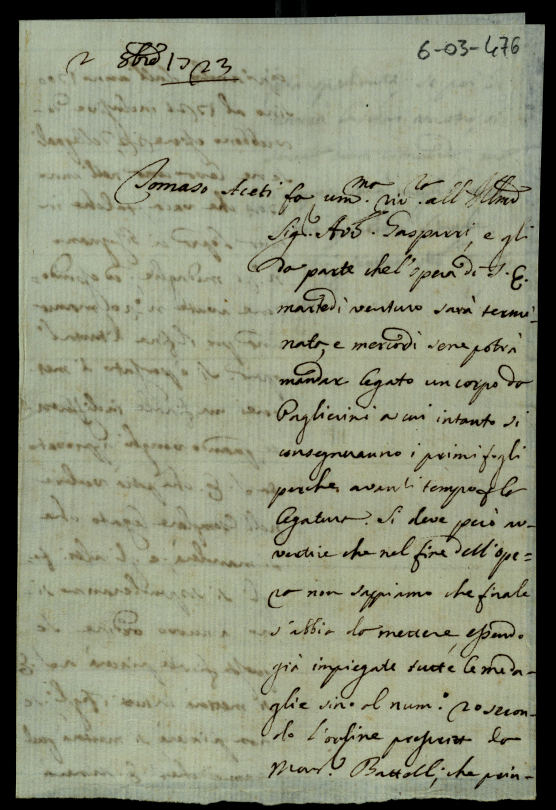 6-03-476
2 8bre 1723
Tomaso Aceti fa um.ma riv.za all'Illmo
Sig.r Avv. Gasparri, e gli
da parte che l'opera di S. E.
martedì venturo sarà termi-
nata, e mercordì se ne potrà
mandar legato un corpo da
Pagliarini a cui intanto si
consegneranno i primi fogli
perche avanti tempo la
legatura. Si deve però av-
vertire che nel fine dell'ope-
ra non sappiamo che finale
s'abbia da mettere, essendo
già impiegate tutte le meda-
glie sino al num.o 20 secon-
do l'ordine da
Mons.r Battelli, che prin-